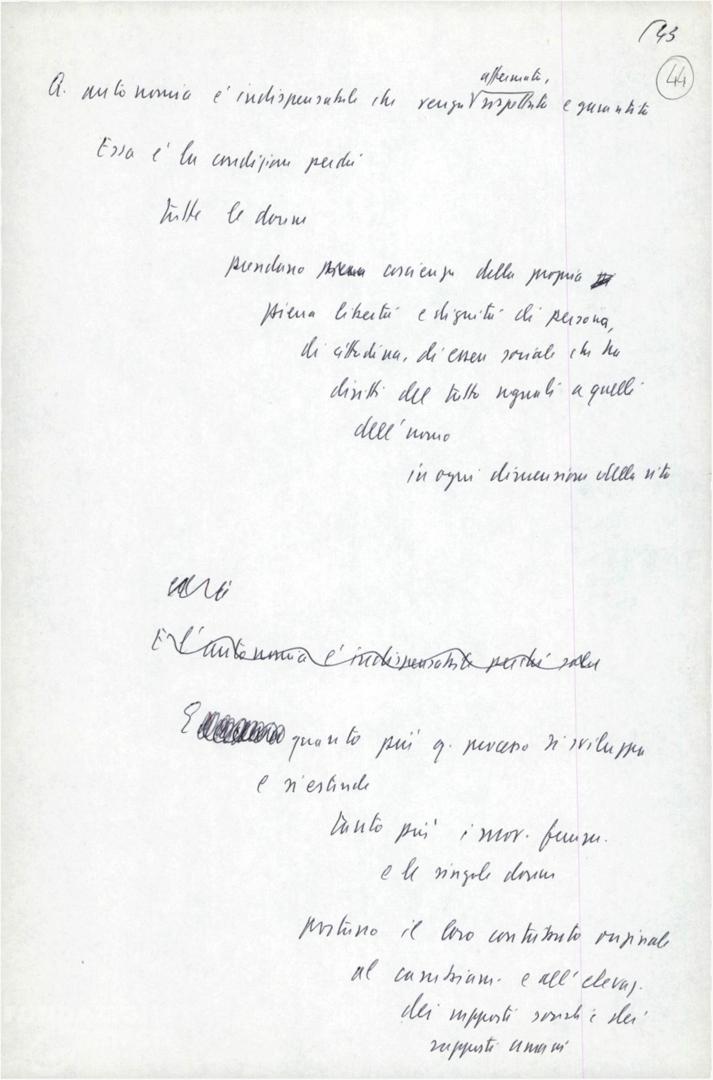 43
44
affermata,
Q. autonomia è indispensabile che venga rispettata e garantita
Essa è la condizione perché
tutte le donne
prendano piena coscienza della propria
piena libertà e dignità di persona,
di cittadina, di essere sociale che ha
diritti del tutto uguali a quelli
dell'uomo
in ogni dimensione della vita
E l'autonomia è indispensabile perché solo
E quanto più q. processo si sviluppa
e si estende
tanto più i mov. femm.
e le singole donne
portano il loro contributo originale
al cambiam. e all'elevaz.
dei rapporti sociali e dei
rapporti umani